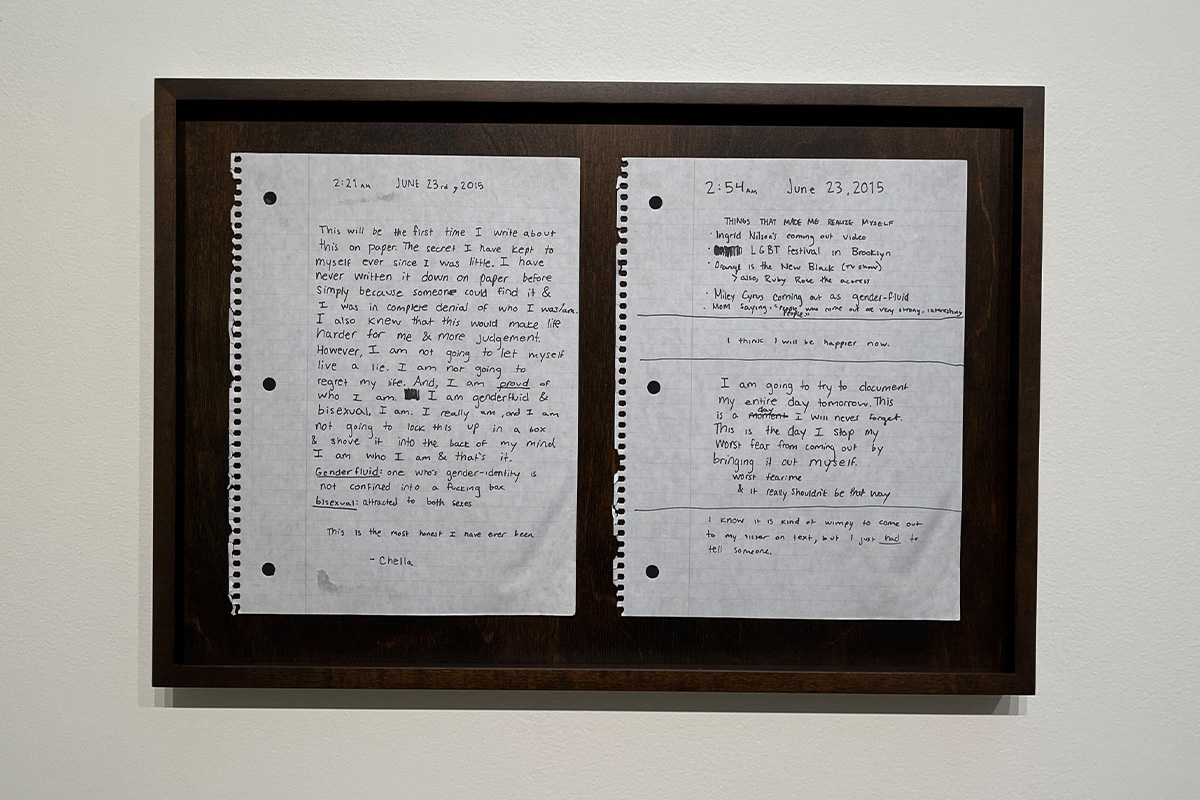 2:21 AM JUNE 23rd, 2015
This will be the first time I write about
this on paper. The secret I have kept to
myself ever since I was little. I have
never written it down on paper before
simply because someone could find it &
I was in complete denial of who I was/am.
I also knew that this would make life
harder for me & more judgement.
However, I am not going to let myself
live a lie. I am not going to
regret my life. And, I am proud of
who I am. I am genderfluid &
bisexual. I am. I really am, and I am
not going to lock this up in a box
& shove it into the back of my mind
I am who I am & that's it.
Genderfluid: one who's gender-identity is
not confined into a fucking box
bisexual: attracted to both sexes
This is the most honest I have ever been
- Chella
2:54 AM June 23, 2015
THINGS THAT MADE ME REALIZE MYSELF
· Ingrid Nilsen's coming out video
· LGBT festival in Brooklyn
· Orange is the New Black (TV show)
> also, Ruby Rose the actress
· Miley Cyrus coming out as gender-fluid
· Mom saying, "people who come out are very strong, interesting
people."
I think I will be happier now.
I am going to try to document
my entire day tomorrow. This
is a moment day I will never forget.
This is the day I stop my
worst fear from coming out by
bringing it out myself.
worst fear: me
& it really shouldn't be that way
I know it is kind of wimpy to come out
to my sister on text, but I just had to
tell someone.